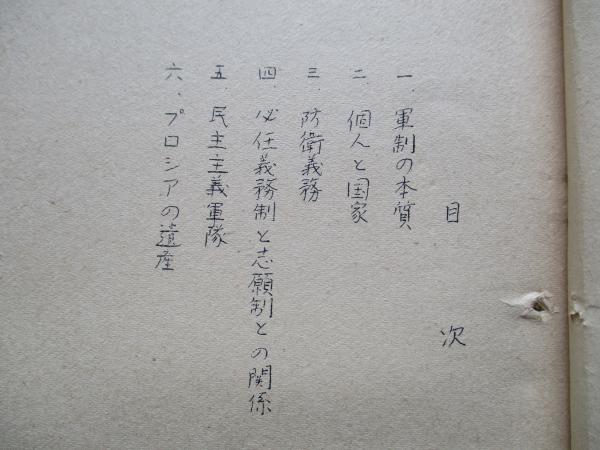 目次
一、軍制の本質
二、個人と国家
三、防衛義務
四、必任義務制と志願制との関係
五、民主主義軍隊
六、プロシアの遺産